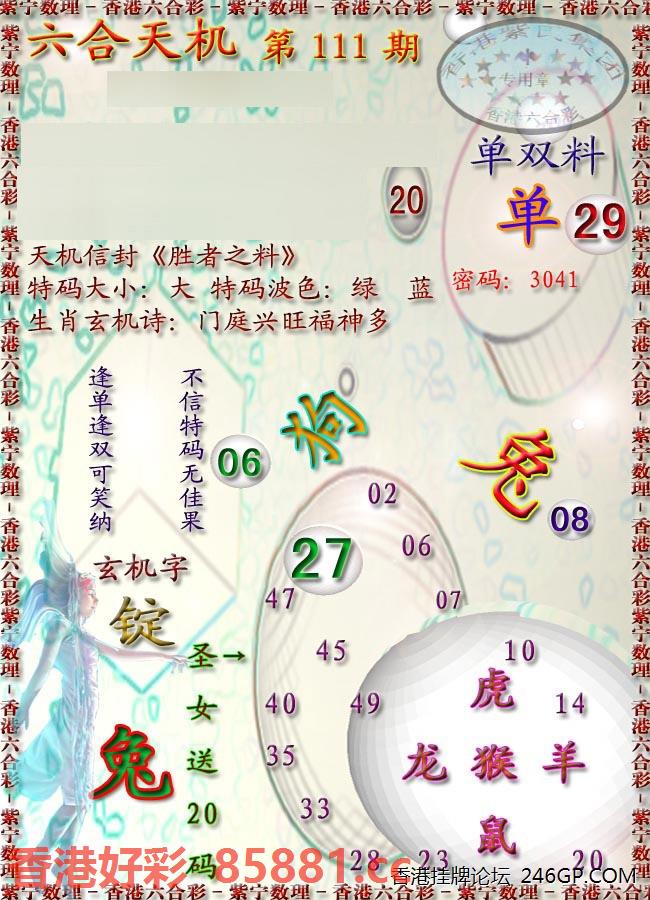 紫宁数理－香港六合彩－紫宁数理－香港六合彩－紫宁数理－香港六合彩－紫宁数理
六合天机 第 111 期
专用章
香港六合彩
单双料
20
单 29
天机信封《胜者之料》
特码大小：大 特码波色：绿 蓝
密码：3041
生肖玄机诗：门庭兴旺福神多
不信特码无佳果
逢单逢双可笑纳
06
狗
兔
08
02
27
06
47
07
玄机字
锭
圣女送20码
→
45
10
虎
40
49
14
兔
35
龙 猴 羊
33
鼠
28
23
20
香港好彩 85881.cc
香港挂牌论坛 246GP.COM